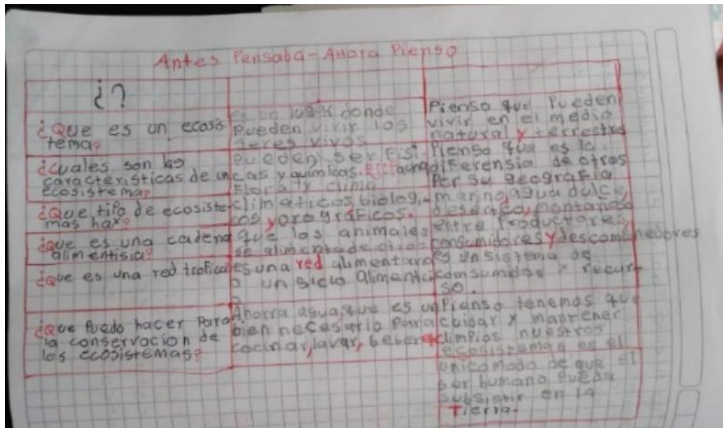 Antes Pensaba - Ahora Pienso
¿?
¿Que es un ecosis
tema?
es un lugar donde
pueden vivir los
seres vivos
Pienso que pueden
vivir en el medio
natural y terrestre
¿cuales son las
caracteristicas de un
ecosistema?
pueden ser fisi
cas y quimicas.
Flora y
Pienso que es la
diferensia de otros
Por su geografia
¿Que tipo de ecosiste
mas hay?
climaticos, biologi
cos y orograficos.
marino, agua dulce,
desertico, montañoso
¿que es una cadena
alimentisia?
que los animales
se alimenta de otros
entre Productores,
consumidores y descomponedores
¿que es una red trofica?
es una red alimentaria
o un siclo alimentici
o
es un sistema de
consumidos y recur
so.
¿que Puedo hacer Para
la conservacion de
los ecosistemas?
Ahorra agua, que es un
bien necesario para
cocinar, lavar, beber
Pienso tenemos que
cuidar y mantener
limpios nuestros
ecosistemas es el
unico modo de que el
ser humano pueda
subsistir en la
Tierra.